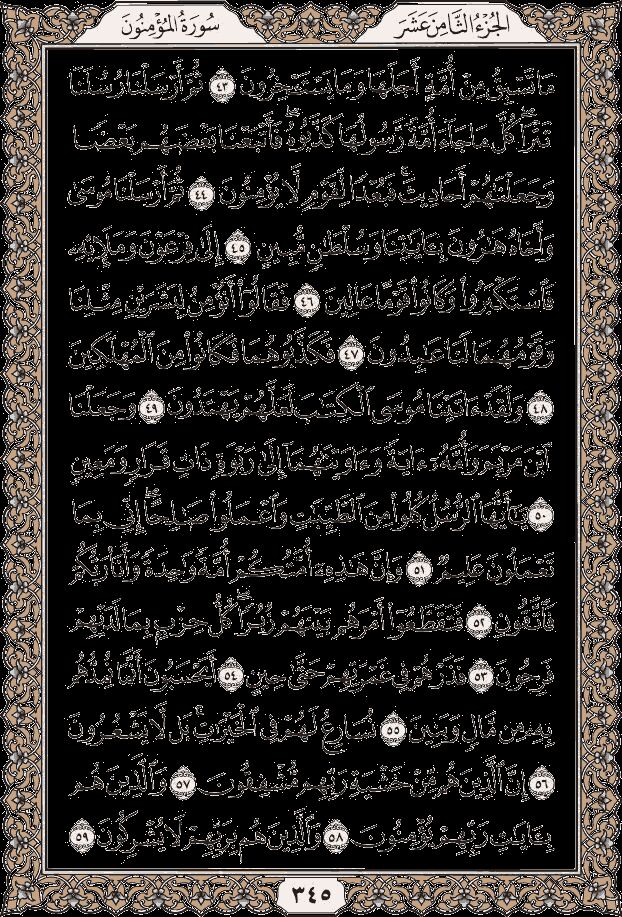 الجُزْءُ الثَّامِنَ عَشَرَ
سُورَةُ المُؤْمِنُونَ
مَا تَسْبِقُ مِنْ أُمَّةٍ أَجَلَهَا وَمَا يَسْتَـْٔخِرُونَ ٤٣ ثُمَّ أَرْسَلْنَا رُسُلَنَا
تَتْرَاۖ كُلَّ مَا جَآءَ أُمَّةً رَّسُولُهَا كَذَّبُوهُۖ فَأَتْبَعْنَا بَعْضَهُم بَعْضًا
وَجَعَلْنَٰهُمْ أَحَادِيثَۚ فَبُعْدًا لِّقَوْمٍ لَّا يُؤْمِنُونَ ٤٤ ثُمَّ أَرْسَلْنَا مُوسَىٰ
وَأَخَاهُ هَٰرُونَ بِـَٔايَٰتِنَا وَسُلْطَٰنٍ مُّبِينٍ ٤٥ إِلَىٰ فِرْعَوْنَ وَمَلَإِي۟هِۦ
فَٱسْتَكْبَرُوا۟ وَكَانُوا۟ قَوْمًا عَالِينَ ٤٦ فَقَالُوٓا۟ أَنُؤْمِنُ لِبَشَرَيْنِ مِثْلِنَا
وَقَوْمُهُمَا لَنَا عَٰبِدُونَ ٤٧ فَكَذَّبُوهُمَا فَكَانُوا۟ مِنَ ٱلْمُهْلَكِينَ
٤٨ وَلَقَدْ ءَاتَيْنَا مُوسَى ٱلْكِتَٰبَ لَعَلَّهُمْ يَهْتَدُونَ ٤٩ وَجَعَلْنَا
ٱبْنَ مَرْيَمَ وَأُمَّهُۥٓ ءَايَةً وَءَاوَيْنَٰهُمَآ إِلَىٰ رَبْوَةٍ ذَاتِ قَرَارٍ وَمَعِينٍ
٥٠ يَٰٓأَيُّهَا ٱلرُّسُلُ كُلُوا۟ مِنَ ٱلطَّيِّبَٰتِ وَٱعْمَلُوا۟ صَٰلِحًاۖ إِنِّى بِمَا
تَعْمَلُونَ عَلِيمٌ ٥١ وَإِنَّ هَٰذِهِۦٓ أُمَّتُكُمْ أُمَّةً وَٰحِدَةً وَأَنَا۠ رَبُّكُمْ
فَٱتَّقُونِ ٥٢ فَتَقَطَّعُوٓا۟ أَمْرَهُم بَيْنَهُمْ زُبُرًاۖ كُلُّ حِزْبٍۭ بِمَا لَدَيْهِمْ
فَرِحُونَ ٥٣ فَذَرْهُمْ فِى غَمْرَتِهِمْ حَتَّىٰ حِينٍ ٥٤ أَيَحْسَبُونَ أَنَّمَا نُمِدُّهُم
بِهِۦ مِن مَّالٍ وَبَنِينَ ٥٥ نُسَارِعُ لَهُمْ فِى ٱلْخَيْرَٰتِۚ بَل لَّا يَشْعُرُونَ
٥٦ إِنَّ ٱلَّذِينَ هُم مِّنْ خَشْيَةِ رَبِّهِم مُّشْفِقُونَ ٥٧ وَٱلَّذِينَ هُم
بِـَٔايَٰتِ رَبِّهِمْ يُؤْمِنُونَ ٥٨ وَٱلَّذِينَ هُم بِرَبِّهِمْ لَا يُشْرِكُونَ ٥٩
٣٤٥